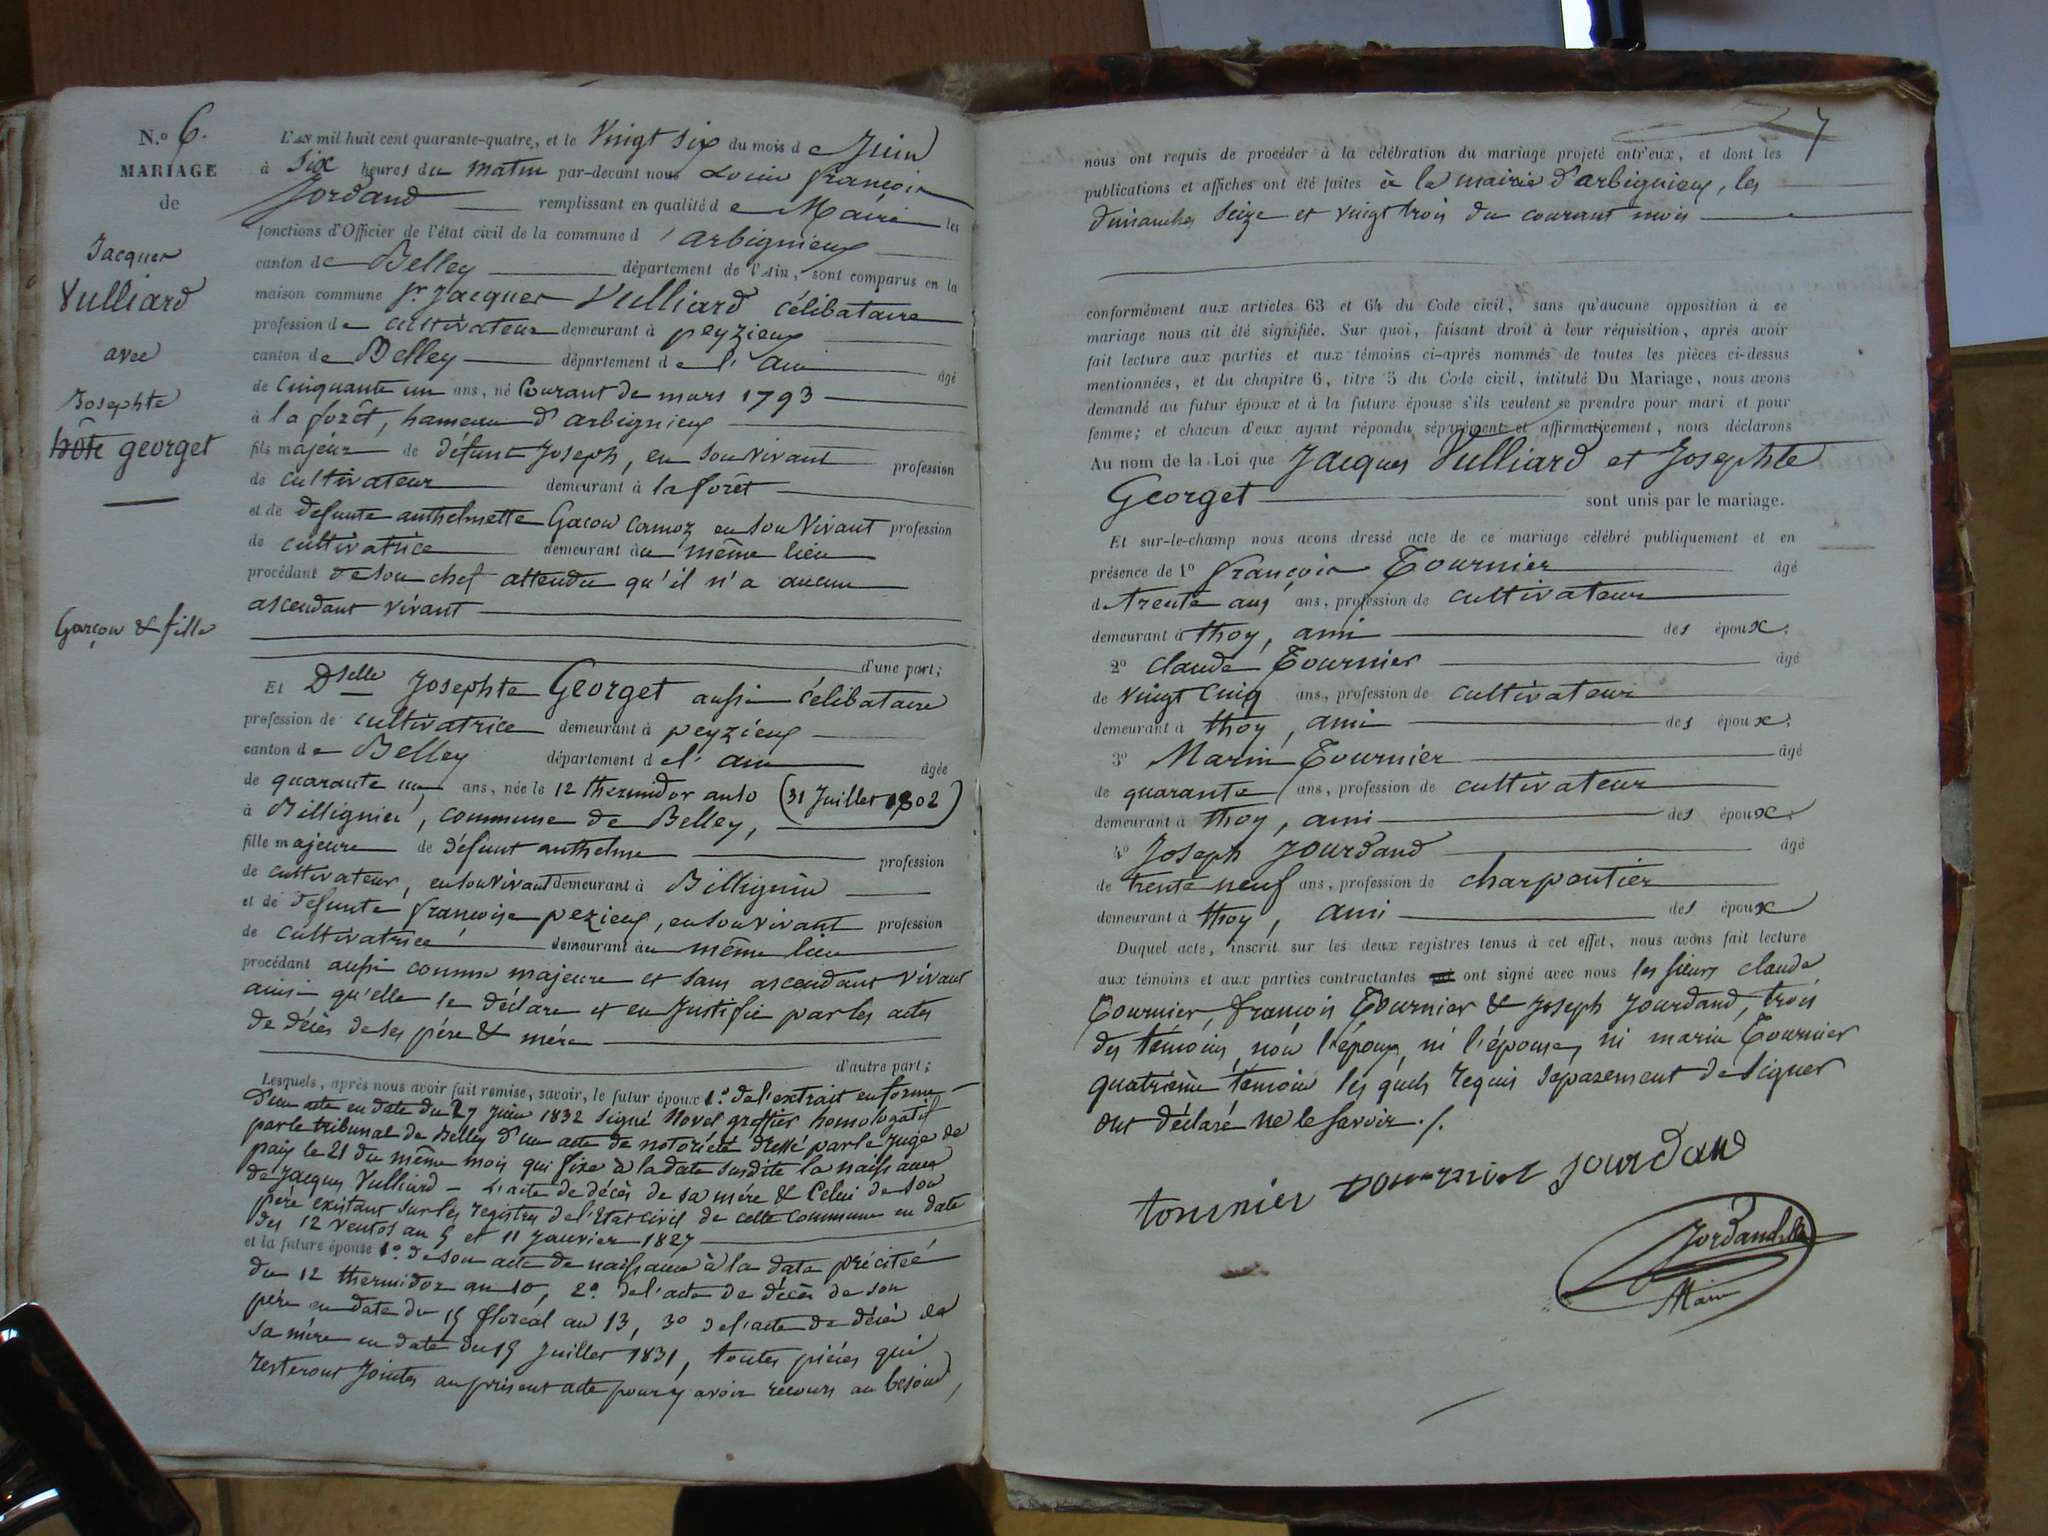 N.o 6.
MARIAGE
de
Jacques
Vulliard
avec
Josephte
georget
Garçon & fille
L'AN mil huit cent quarante-quatre, et le Vingt six du mois de Juin
à Six heures du matin par-devant nous Louis françois
Jordand remplissant en qualité de Maire les
fonctions d'Officier de l'état civil de la commune d'arbignieux
canton de Belley département de l'Ain, sont comparus en la
maison commune Sr. Jacques Vulliard célibataire
profession de cultivateur demeurant à peyzieux
canton de Belley département de l'ain âgé
de cinquante un ans, né Courant de mars 1793
à la forêt, hameau d'arbignieux
fils majeur de défunt Joseph, en son vivant profession
de cultivateur demeurant à la forêt
et de defunte anthelmette Gacon Camoz en son Vivant profession
de cultivatrice demeurant au même lieu
procédant de son chef attendu qu'il n'a aucun
ascendant vivant
d'une part;
Et Dselle Josephte Georget aussi célibataire
profession de cultivatrice demeurant à peyzieux
canton de Belley département de l'ain âgée
de quarante un ans, née le 12 thermidor an 10 (31 Juillet 1802)
à Billignieu, commune de Belley,
fille majeure de défunt anthelme profession
de cultivateur, en son vivant demeurant à Billignin
et de defunte françoise pezieux, en son vivant profession
de cultivatrice demeurant au même lieu
procédant aussi comme majeure et sans ascendant vivant
ainsi qu'elle le déclare et en Justifie par les actes
de décès de ses père & mère
d'autre part;
Lesquels, après nous avoir fait remise, savoir, le futur époux 1.o de l'extrait en forme
d'un acte en date du 27 Juin 1832 signé Novel greffier homologatif
par le tribunal de Belley d'un acte de notoriété dressé par le Juge de
paix le 21 du même mois qui fixe à la date susdite la naissance
de Jacques Vulliard - L'acte de décès de sa mère & Celui de son
père existant sur les registres de l'Etat civil de cette commune en date
des 12 ventos an 5 et 11 Janvier 1827
et la future épouse 1.o de son acte de naissance à la date précitée
du 12 thermidor an 10, 2.o de l'acte de décès de son
père en date du 15 floréal an 13, 3.o de l'acte de décès de
sa mère en date du 15 Juillet 1831, toutes pièces qui
resteront Jointes au présent acte pour y avoir recours au besoin,
7
nous ont requis de procéder à la célébration du mariage projeté entr'eux, et dont les
publications et affiches ont été faites à la mairie d'arbignieux, les
dimanches seize et vingt trois du courant mois
conformément aux articles 63 et 64 du Code civil, sans qu'aucune opposition à ce
mariage nous ait été signifiée. Sur quoi, faisant droit à leur réquisition, après avoir
fait lecture aux parties et aux témoins ci-après nommés de toutes les pièces ci-dessus
mentionnées, et du chapitre 6, titre 5 du Code civil, intitulé Du Mariage, nous avons
demandé au futur époux et à la future épouse s'ils veulent se prendre pour mari et pour
femme; et chacun d'eux ayant répondu séparément et affirmativement, nous déclarons
Au nom de la Loi que Jacques Vulliard et Josephte
Georget sont unis par le mariage.
Et sur-le-champ nous avons dressé acte de ce mariage célébré publiquement et en
présence de 1o françois Tournier âgé
de trente ans ans, profession de cultivateur
demeurant à thoy, ami des époux;
2o Claude Tournier âgé
de vingt cinq ans, profession de cultivateur
demeurant à thoy, ami des époux;
3o Marin Tournier âgé
de quarante ans, profession de cultivateur
demeurant à thoy, ami des époux;
4o Joseph Jourdand âgé
de trente neuf ans, profession de charpentier
demeurant à thoy, ami des époux
Duquel acte, inscrit sur les deux registres tenus à cet effet, nous avons fait lecture
aux témoins et aux parties contractantes ont signé avec nous les sieurs claude
Tournier, françois Tournier & Joseph Jourdand, trois
des témoins, non l'époux, ni l'épouse, ni marin Tournier
quatrième témoin les quels requis séparément de signer
ont déclaré ne le savoir ./.
tournier tournier jourdan
Jordand
Maire